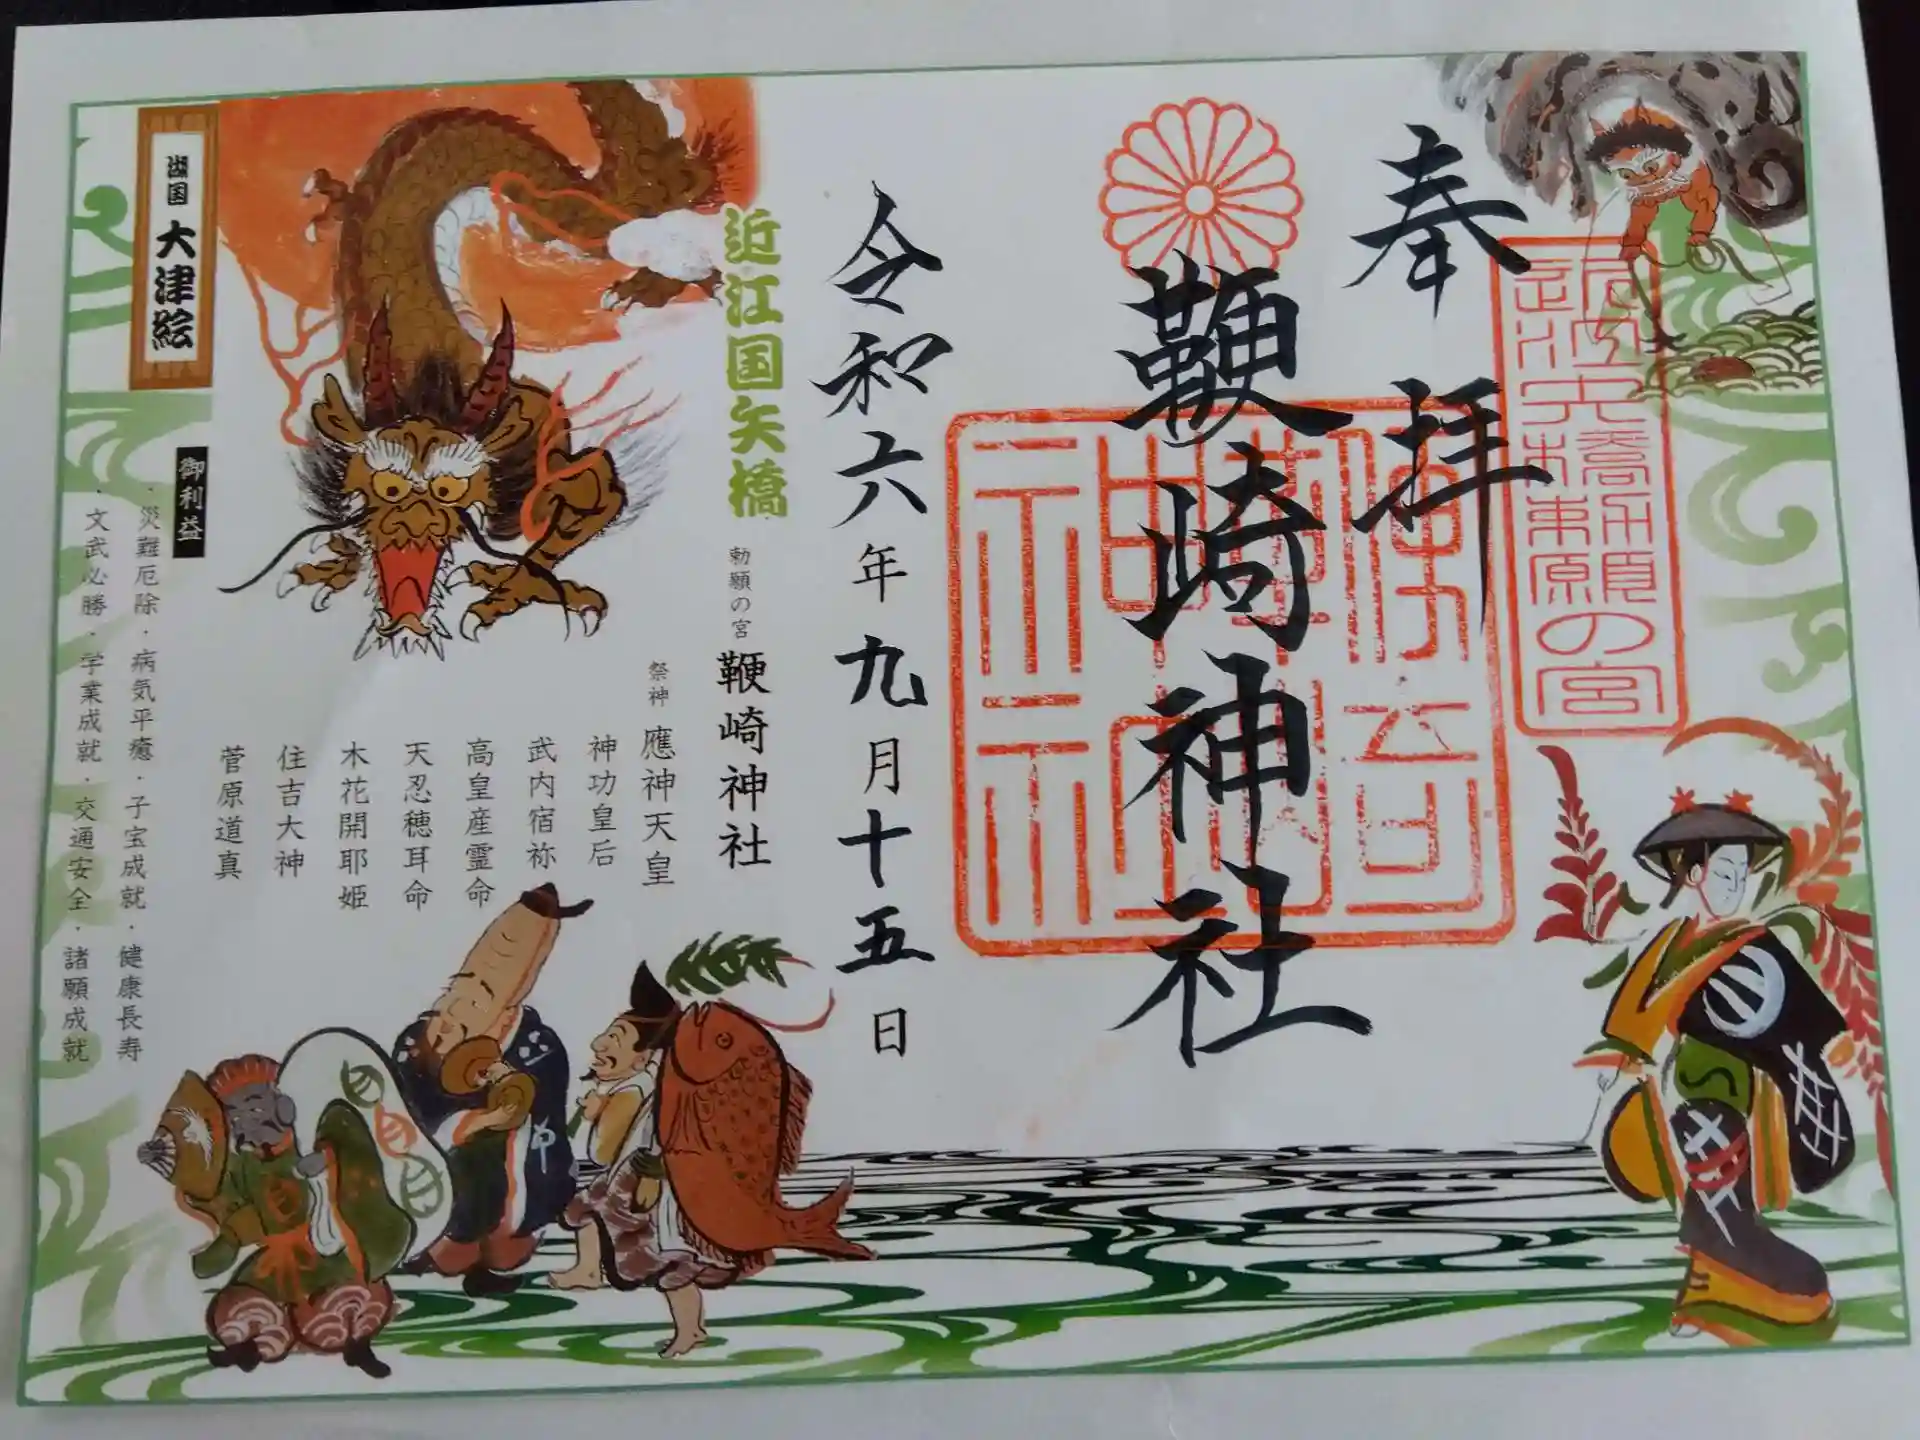 奉拝
鞭崎神社
令和六年九月十五日
近江国矢橋
勅願の宮 鞭崎神社
祭神 應神天皇
神功皇后
武内宿祢
高皇産霊命
天忍穂耳命
木花開耶姫
住吉大神
菅原道真
湖国 大津絵
御利益
・災難厄除・病気平癒・子宝成就・健康長寿
・文武必勝・学業成就・交通安全・諸願成就